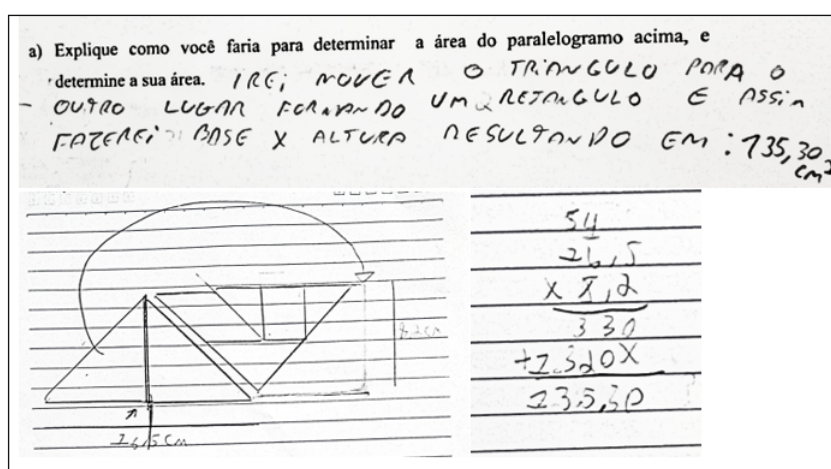 a) Explique como você faria para determinar a área do paralelogramo acima, e
determine a sua área. IREi MOVER O TRiANGULO PARA O
OUTRO LUGAR FORMANDO UM RETANGULO E ASSiM
FAZEREi BASE X ALTURA RESULTANDO EM: 135,30
cm²
8,2cm
16,5cm
54
16,5
x 8,2
330
+1320X
135,30